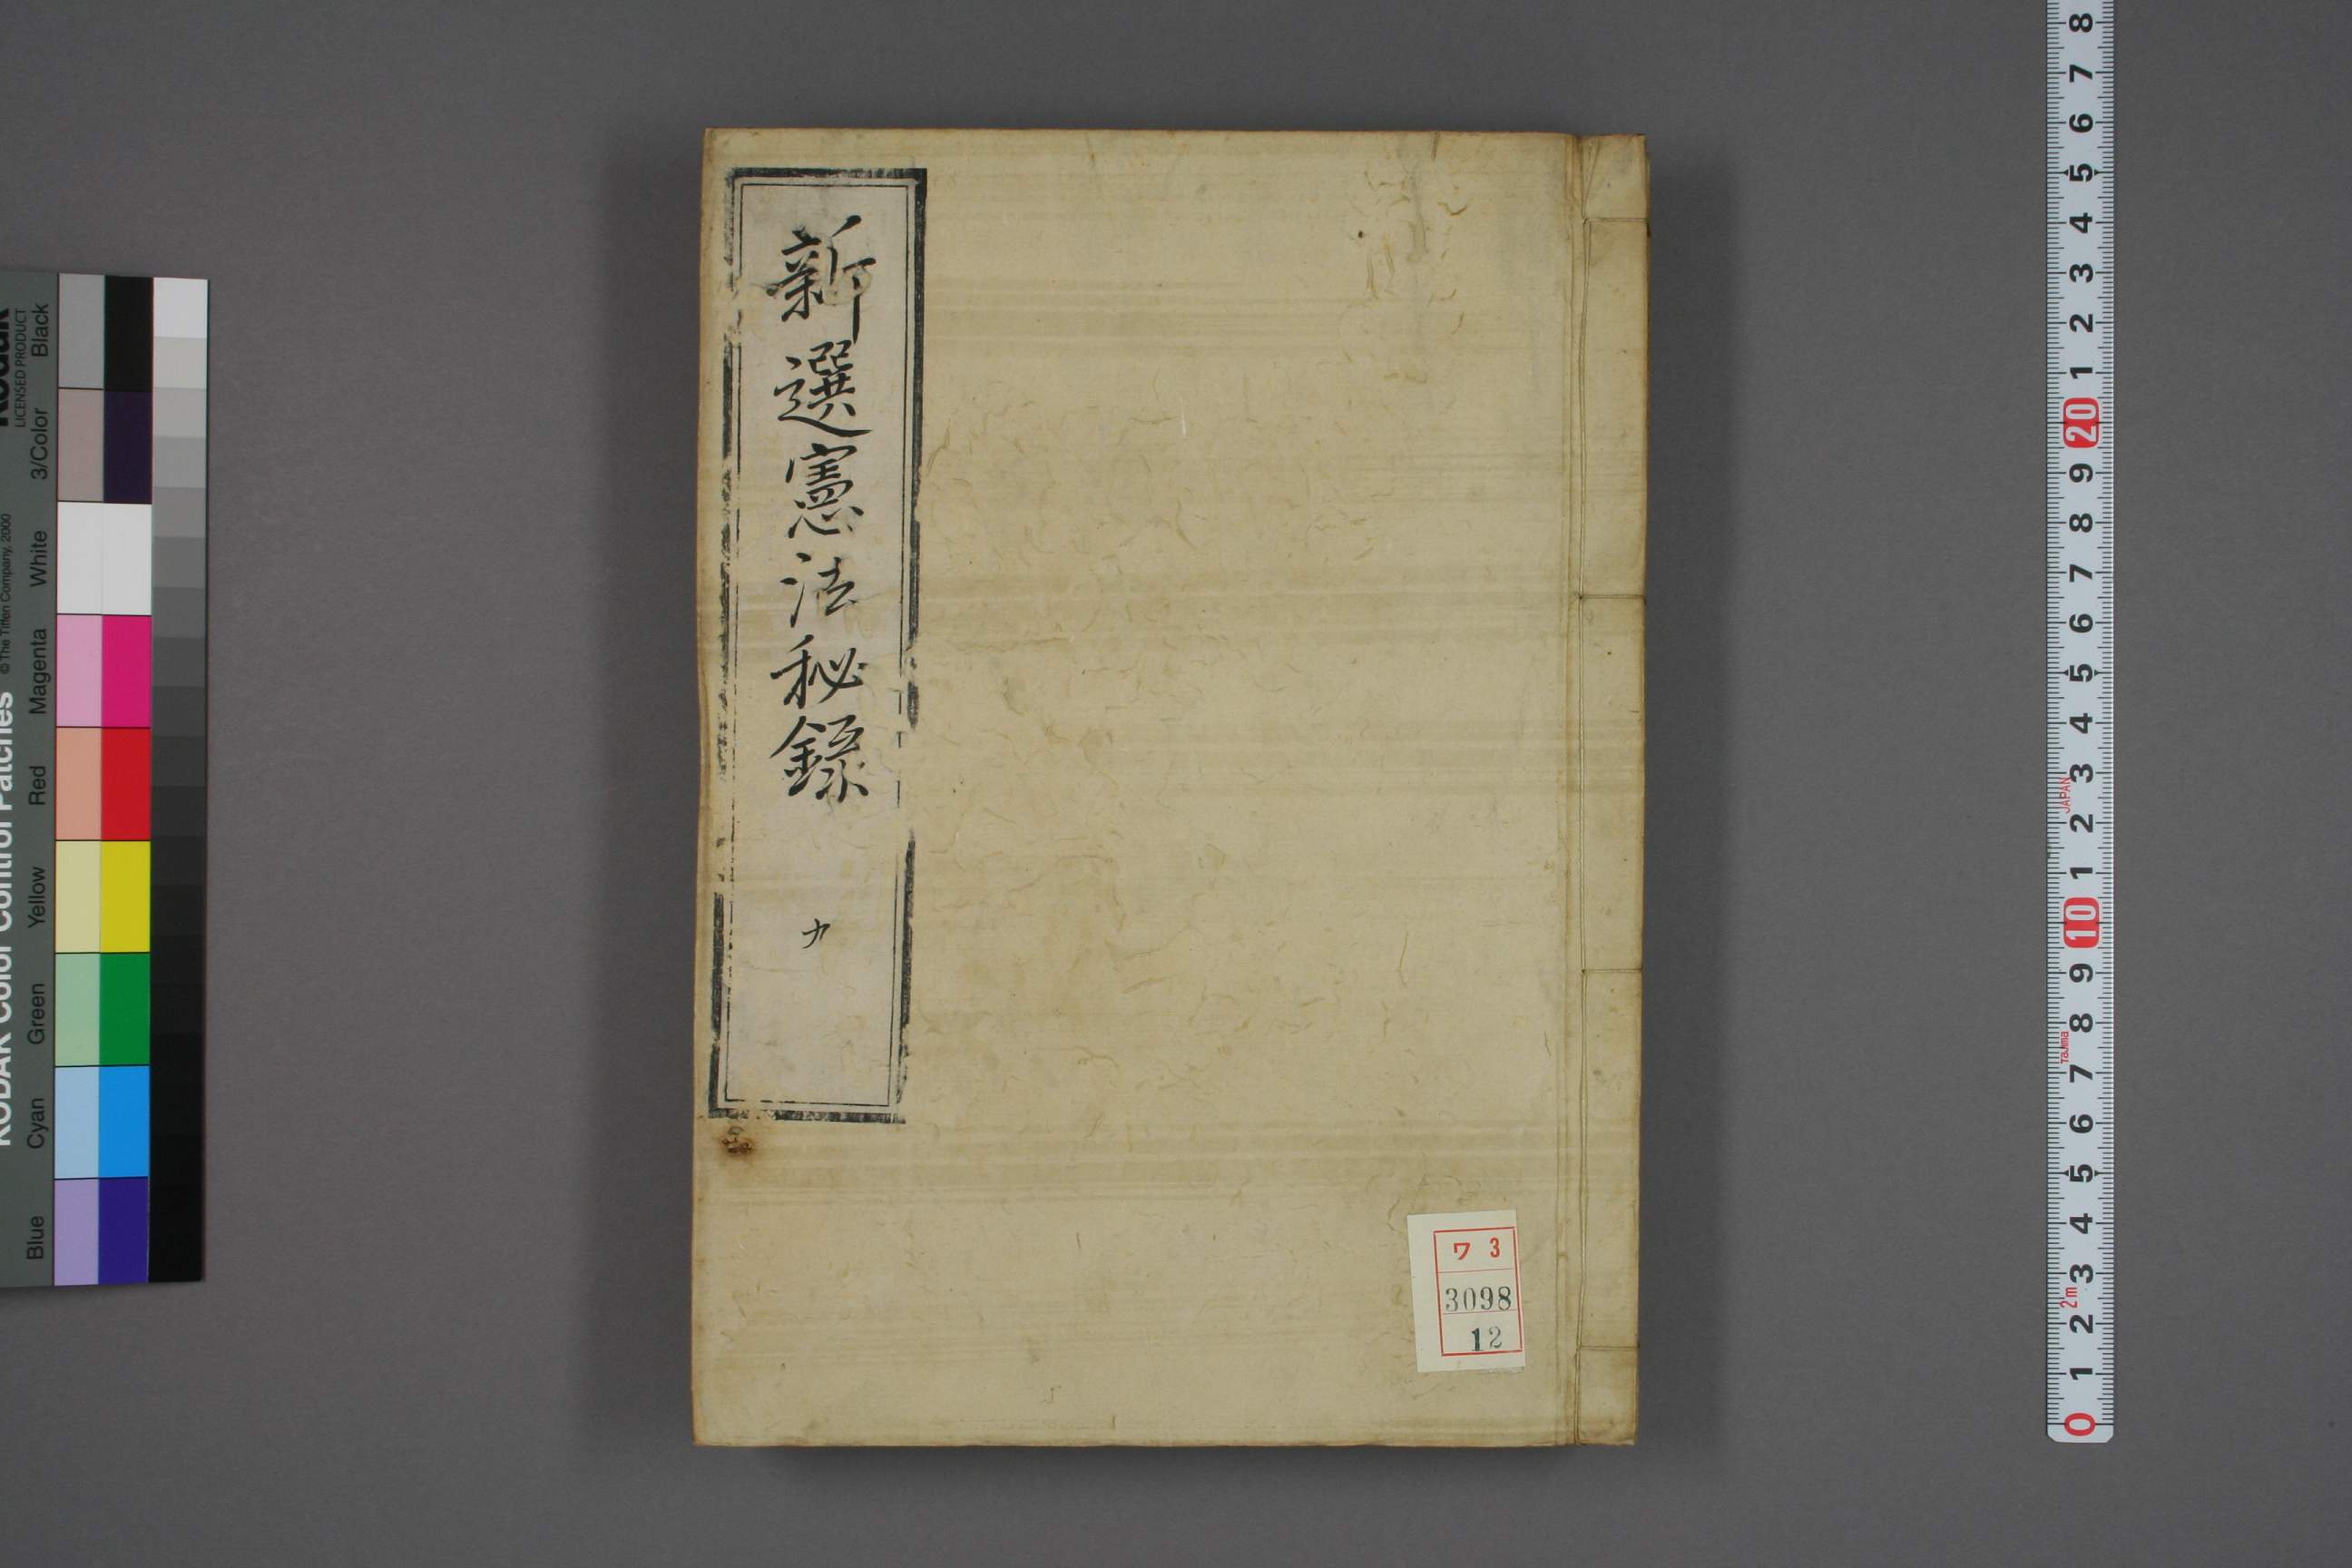 新選憲法秘録
ワ 3
3098
12
KODAK Color Control Patches
© The Tiffen Company, 2000
Kodak
LICENSED PRODUCT
Blue
Cyan
Green
Yellow
Red
Magenta
White
3/Color
Black
8
7
6
5
4
3
2
1
20
9
8
7
6
5
4
3
JAPAN
2
1
10
9
8
Tajima
7
6
5
4
3
2m
2
1
0